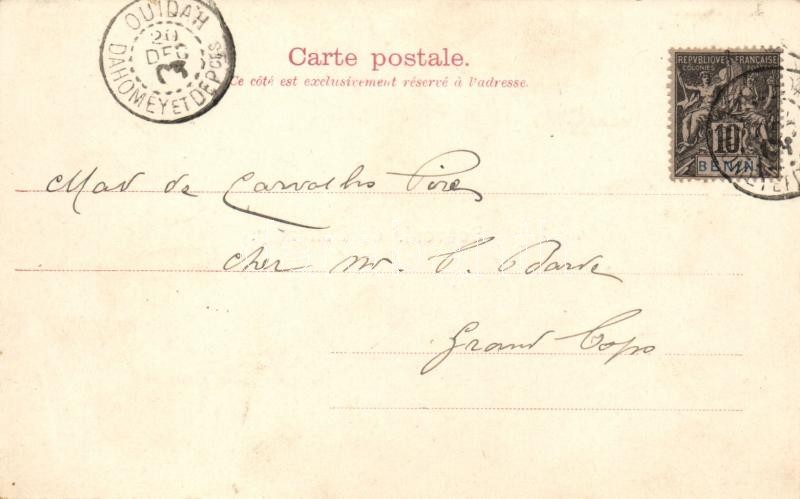 OUIDAH
20
DEC
DAHOMEY ET DEPces
Carte postale.
Ce côté est exclusivement réservé à l'adresse.
REPVBLIQVE FRANÇAISE
COLONIES
10
BENIN
Mad de Carvalho
cher Mr.
Grand Popo